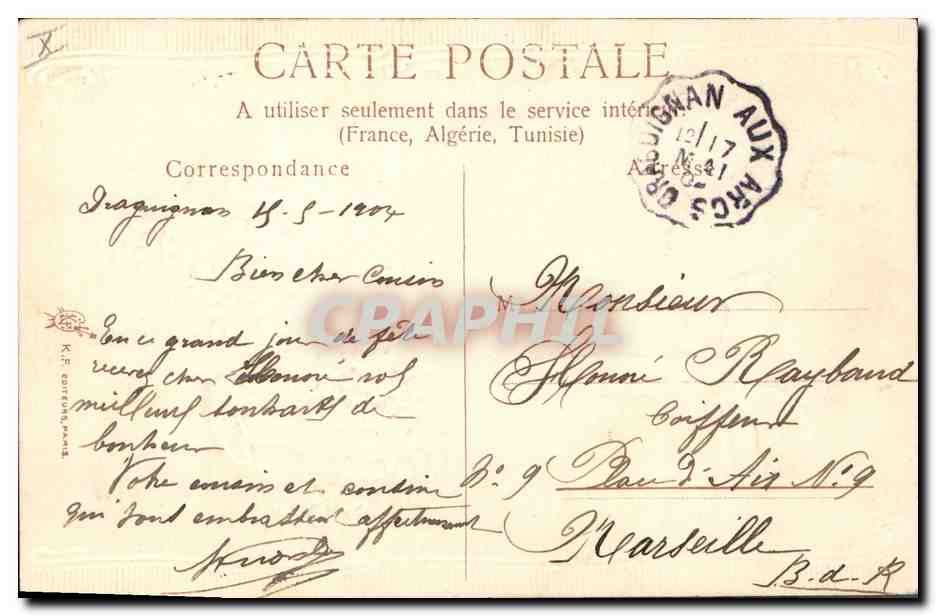 X
CARTE POSTALE
A utiliser seulement dans le service intérieur
(France, Algérie, Tunisie)
Correspondance
Adresse
DRAGUIGNAN AUX ARCS
12/17
MAI
Draguignan 15-5-1904
Bien cher Cousin
En ce grand jour de fête
recevez cher Honoré nos
meilleurs souhaits de
bonheur
Votre cousin et cousine
qui vous embrassent affectueusement
M
Monsieur
Honoré Raybaud
Coiffeur
No 9 Place d'Aix No 9
Marseille
B-d-R
K.F. EDITEURS, PARIS.
CPAPHIL